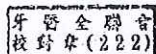 牙醫全聯會
校對章(222)